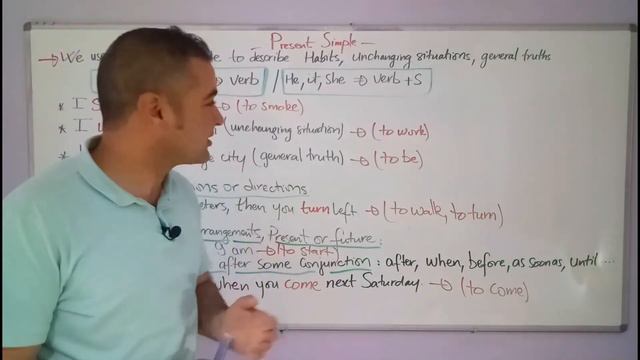 Present Simple —
→ We use to describe Habits, unchanging situations, general truths
→ verb / He, it, She → verb + S
* I S → (to smoke)
* I (unchanging situation) → (to work)
* city (general truth) → (to be)
or directions
then you turn left → (to walk, to turn)
Present or future:
9 am → (to start)
after some Conjunction: after, when, before, as soon as, until ...
when you come next Saturday → (to come)